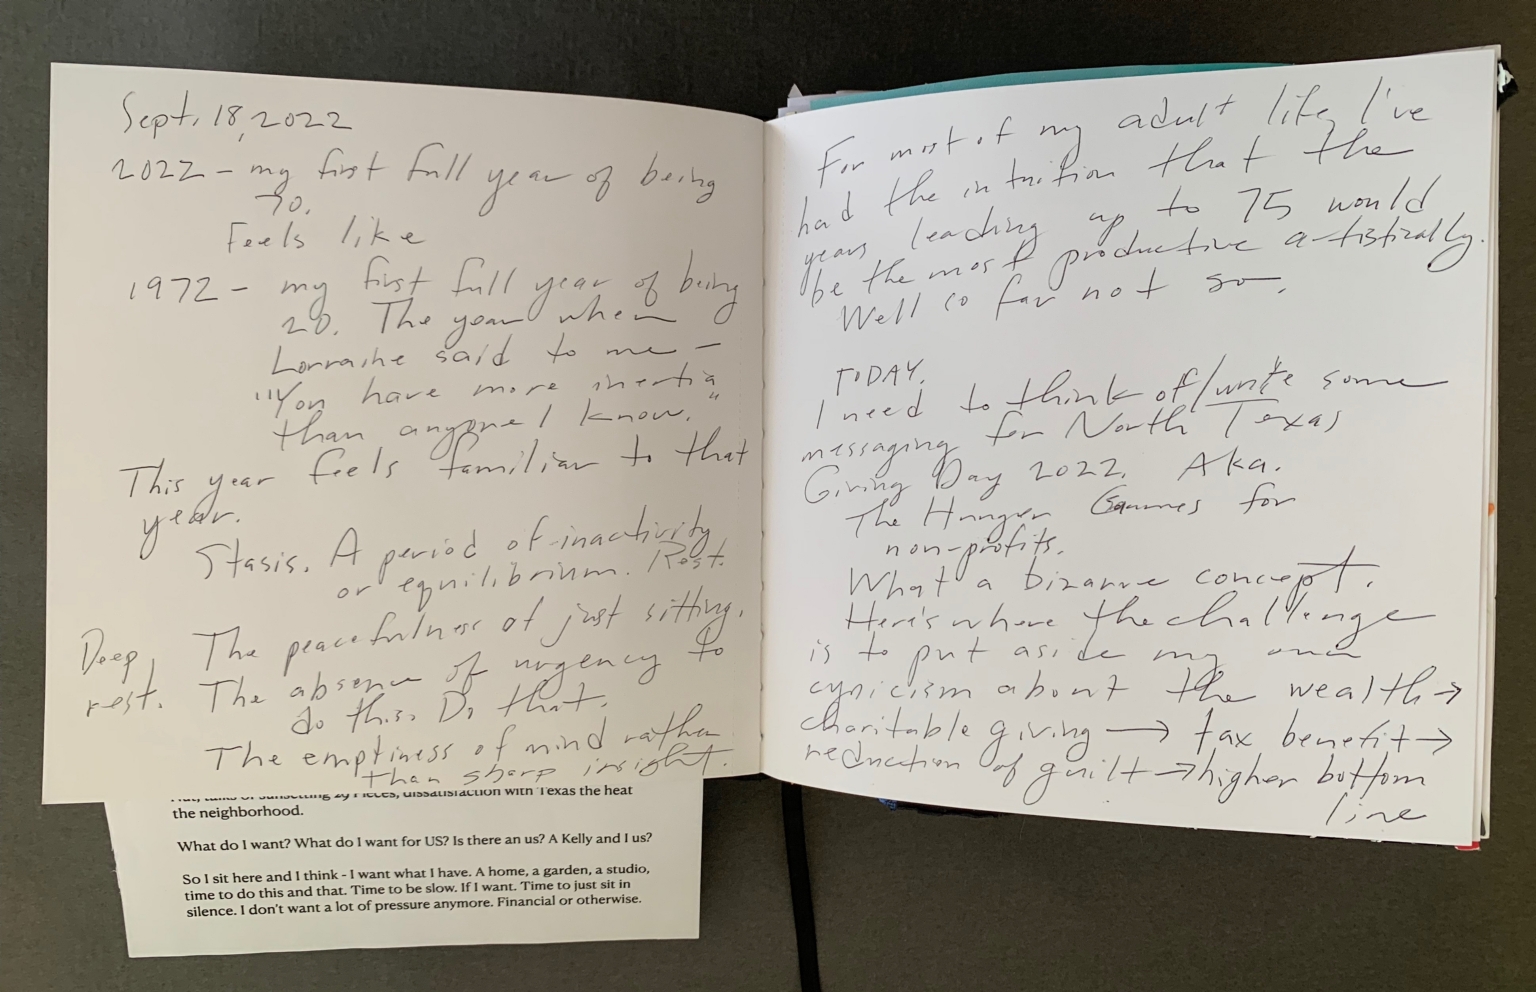 Sept. 18, 2022
2022 - my first full year of being
70.
Feels like
1972 - my first full year of being
20. The year when
Lorraine said to me -
"You have more inertia
than anyone I know."
This year feels familiar to that
year.
Stasis. A period of inactivity
or equilibrium. Rest.
The peacefulness of just sitting.
Deep
rest.
The absence of urgency to
do this. Do that.
The emptiness of mind rather
than sharp insight.
29 Pieces, dissatisfaction with Texas the heat
the neighborhood.
What do I want? What do I want for US? Is there an us? A Kelly and I us?
So I sit here and I think - I want what I have. A home, a garden, a studio,
time to do this and that. Time to be slow. If I want. Time to just sit in
silence. I don't want a lot of pressure anymore. Financial or otherwise.
For most of my adult life, I've
had the intuition that the
years leading up to 75 would
be the most productive artistically.
Well so far not so.
TODAY.
I need to think of/write some
messaging for North Texas
Giving Day 2022. Aka.
The Hunger Games for
non-profits.
What a bizarre concept.
Here's where the challenge
is to put aside my own
cynicism about the wealth →
charitable giving → tax benefit →
reduction of guilt → higher bottom
line